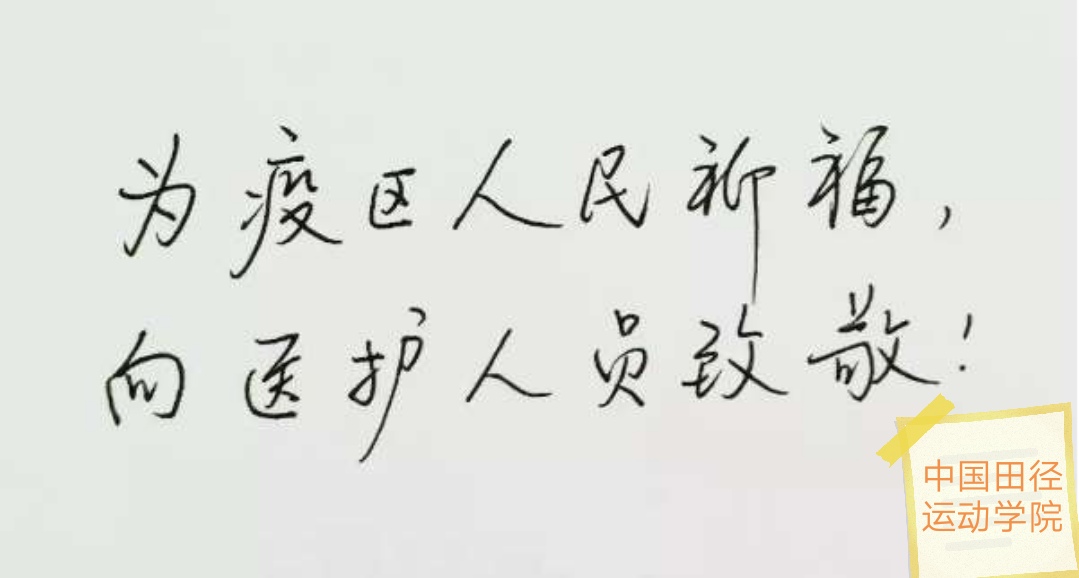 为疫区人民祈福,
向医护人员致敬!
中国田径
运动学院